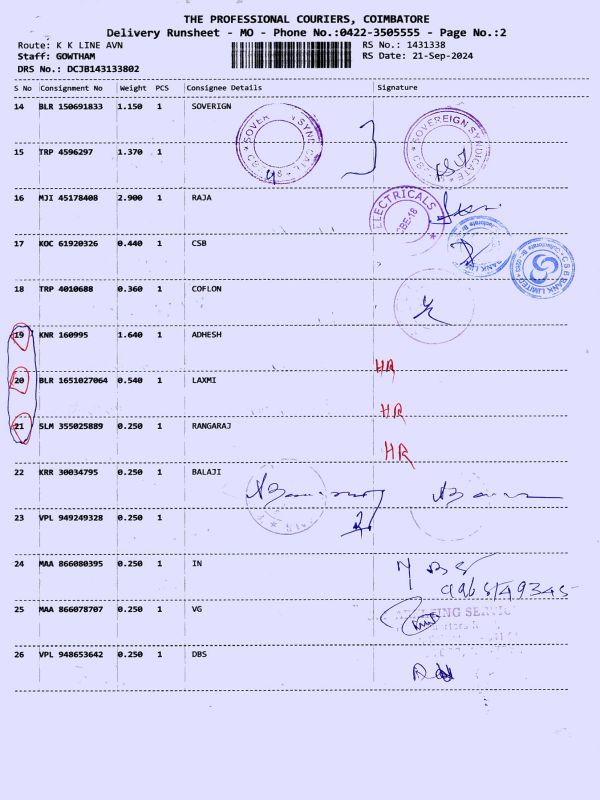 THE PROFESSIONAL COURIERS, COIMBATORE
Delivery Runsheet - MO - Phone No.:0422-3505555 - Page No.:2
Route: K K LINE AVN RS No.: 1431338
Staff: GOWTHAM RS Date: 21-Sep-2024
DRS No.: DCJB143133802
S No Consignment No Weight PCS Consignee Details Signature
14 BLR 150691833 1.150 1 SOVERIGN
SOVEREIGN SYNDICATE
15 TRP 4596297 1.370 1
16 MJI 45178408 2.900 1 RAJA
ELECTRICALS
17 KOC 61920326 0.440 1 CSB
CSB BANK LIMITED
18 TRP 4010688 0.360 1 COFLON
19 KNR 160995 1.640 1 ADHESH
HR
20 BLR 1651027064 0.540 1 LAXMI
HR
21 SLM 355025889 0.250 1 RANGARAJ
HR
22 KRR 30034795 0.250 1 BALAJI
23 VPL 949249328 0.250 1
24 MAA 866080395 0.250 1 IN
25 MAA 866078707 0.250 1 VG
26 VPL 948653642 0.250 1 DBS